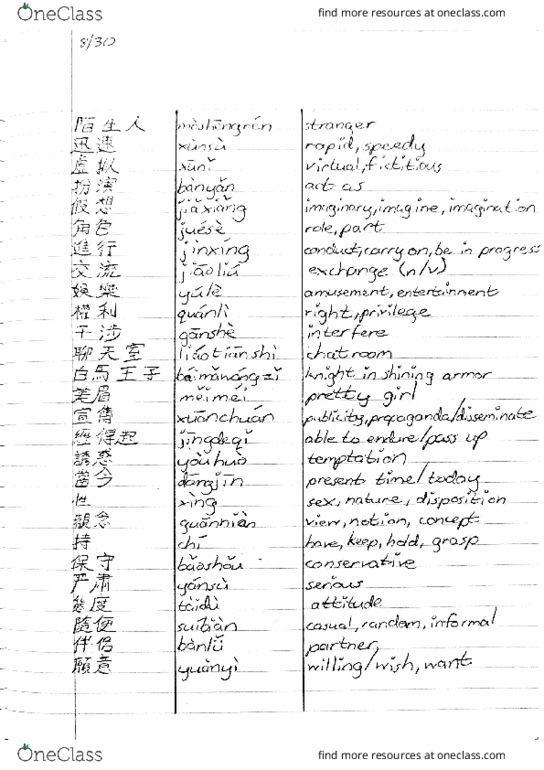 OneClass find more resources at oneclass.com
8/30
陌生人 mòshēngrén stranger
迅速 xùnsù rapid, speedy
虛拟 xūnǐ virtual, fictitious
扮演 bànyǎn act as
假想 jiǎxiǎng imaginary, imagine, imagination
角色 juésè role, part
進行 jìnxíng conduct, carry on, be in progress
交流 jiāoliú exchange (n/v)
娛樂 yúlè amusement, entertainment
權利 quánlì right, privilege
干涉 gānshè interfere
聊天室 liáotiānshì chatroom
白馬王子 báimǎwángzǐ knight in shining armor
美眉 měiméi pretty girl
宣傳 xuānchuán publicity, propaganda/disseminate
經得起 jīngdeqǐ able to endure/pass up
誘惑 yòuhuò temptation
當今 dāngjīn present time/today
性 xìng sex, nature, disposition
觀念 guānniàn view, notion, concept
持 chí have, keep, hold, grasp
保守 bǎoshǒu conservative
严肃 yánsù serious
態度 tàidù attitude
隨便 suíbiàn casual, random, informal
伴侣 bànlǚ partner,
願意 yuànyì willing/wish, want
OneClass find more resources at oneclass.com